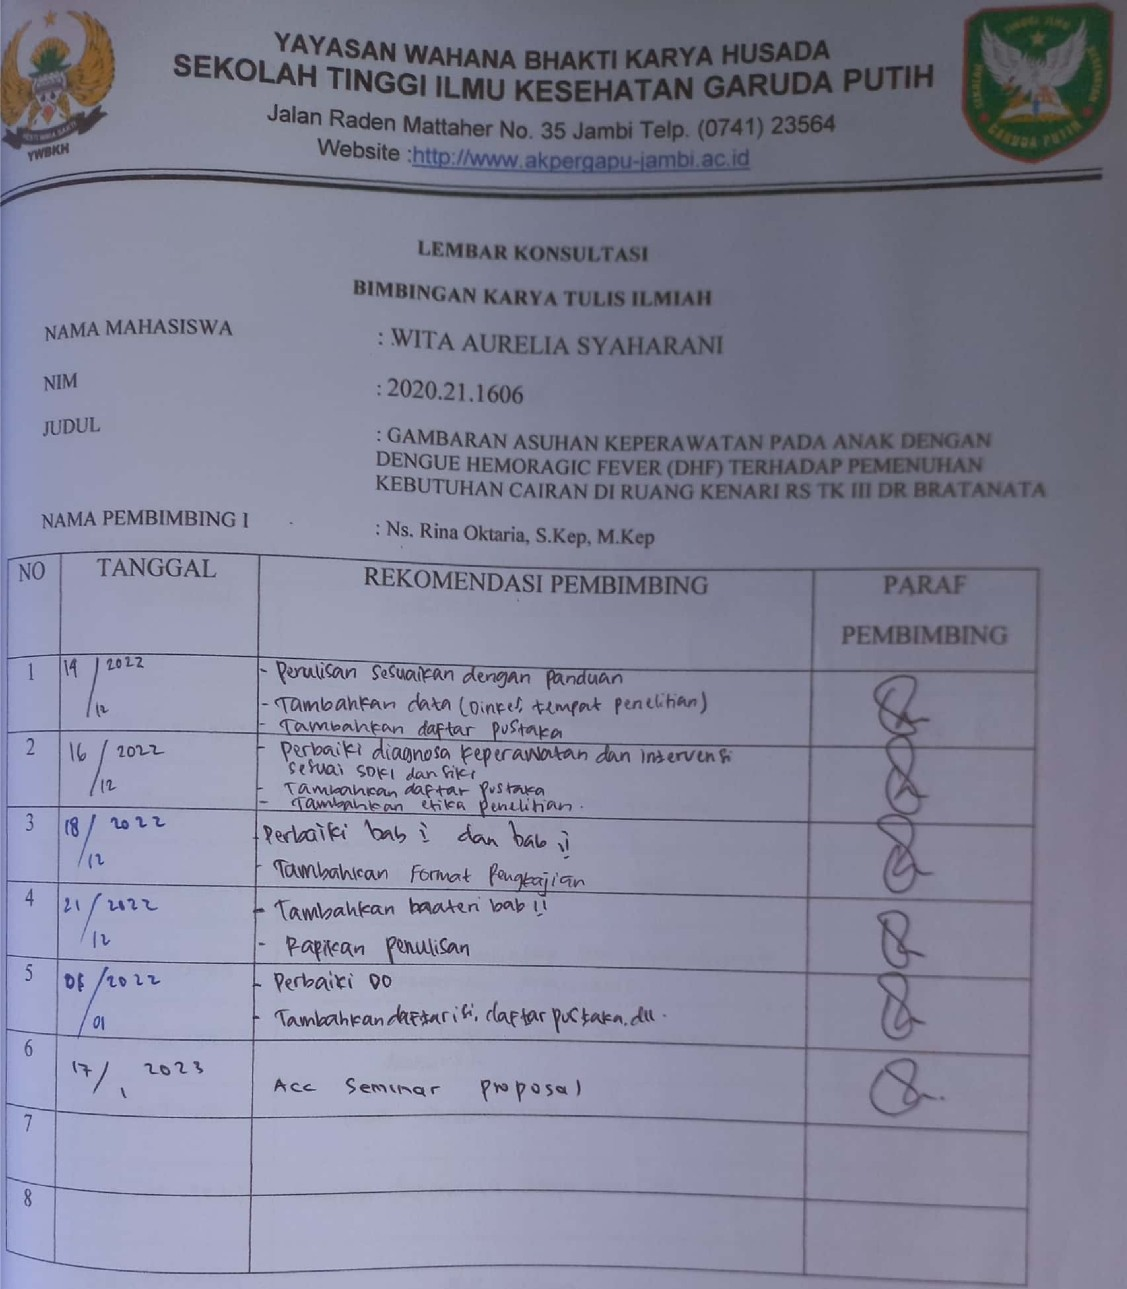 YAYASAN WAHANA BHAKTI KARYA HUSADA
SEKOLAH TINGGI ILMU KESEHATAN GARUDA PUTIH
Jalan Raden Mattaher No. 35 Jambi Telp. (0741) 23564
Website :http://www.akpergapu-jambi.ac.id
YWBKH
GARUDA PUTIH
LEMBAR KONSULTASI
BIMBINGAN KARYA TULIS ILMIAH
NAMA MAHASISWA : WITA AURELIA SYAHARANI
NIM : 2020.21.1606
JUDUL : GAMBARAN ASUHAN KEPERAWATAN PADA ANAK DENGAN
DENGUE HEMORAGIC FEVER (DHF) TERHADAP PEMENUHAN
KEBUTUHAN CAIRAN DI RUANG KENARI RS TK III DR BRATANATA
NAMA PEMBIMBING I : Ns. Rina Oktaria, S.Kep, M.Kep
NO TANGGAL REKOMENDASI PEMBIMBING PARAF
PEMBIMBING
1 19/12 2022 - Penulisan sesuaikan dengan panduan
- Tambahkan data (Dinkes, tempat penelitian)
- Tambahkan daftar pustaka
2 16/12 2022 - Perbaiki diagnosa keperawatan dan intervensi
sesuai SDKI dan SIKI
- Tambahkan daftar pustaka
- Tambahkan etika penelitian.
3 18/12 2022 - Perbaiki bab i dan bab ii
- Tambahkan Format Pengkajian
4 21/12 2022 - Tambahkan bab ii
- Rapikan Penulisan
5 /01 2022 - Perbaiki DO
- Tambahkan daftar isi, daftar pustaka, dll.
6 17/1 2023 Acc Seminar Proposal
7
8